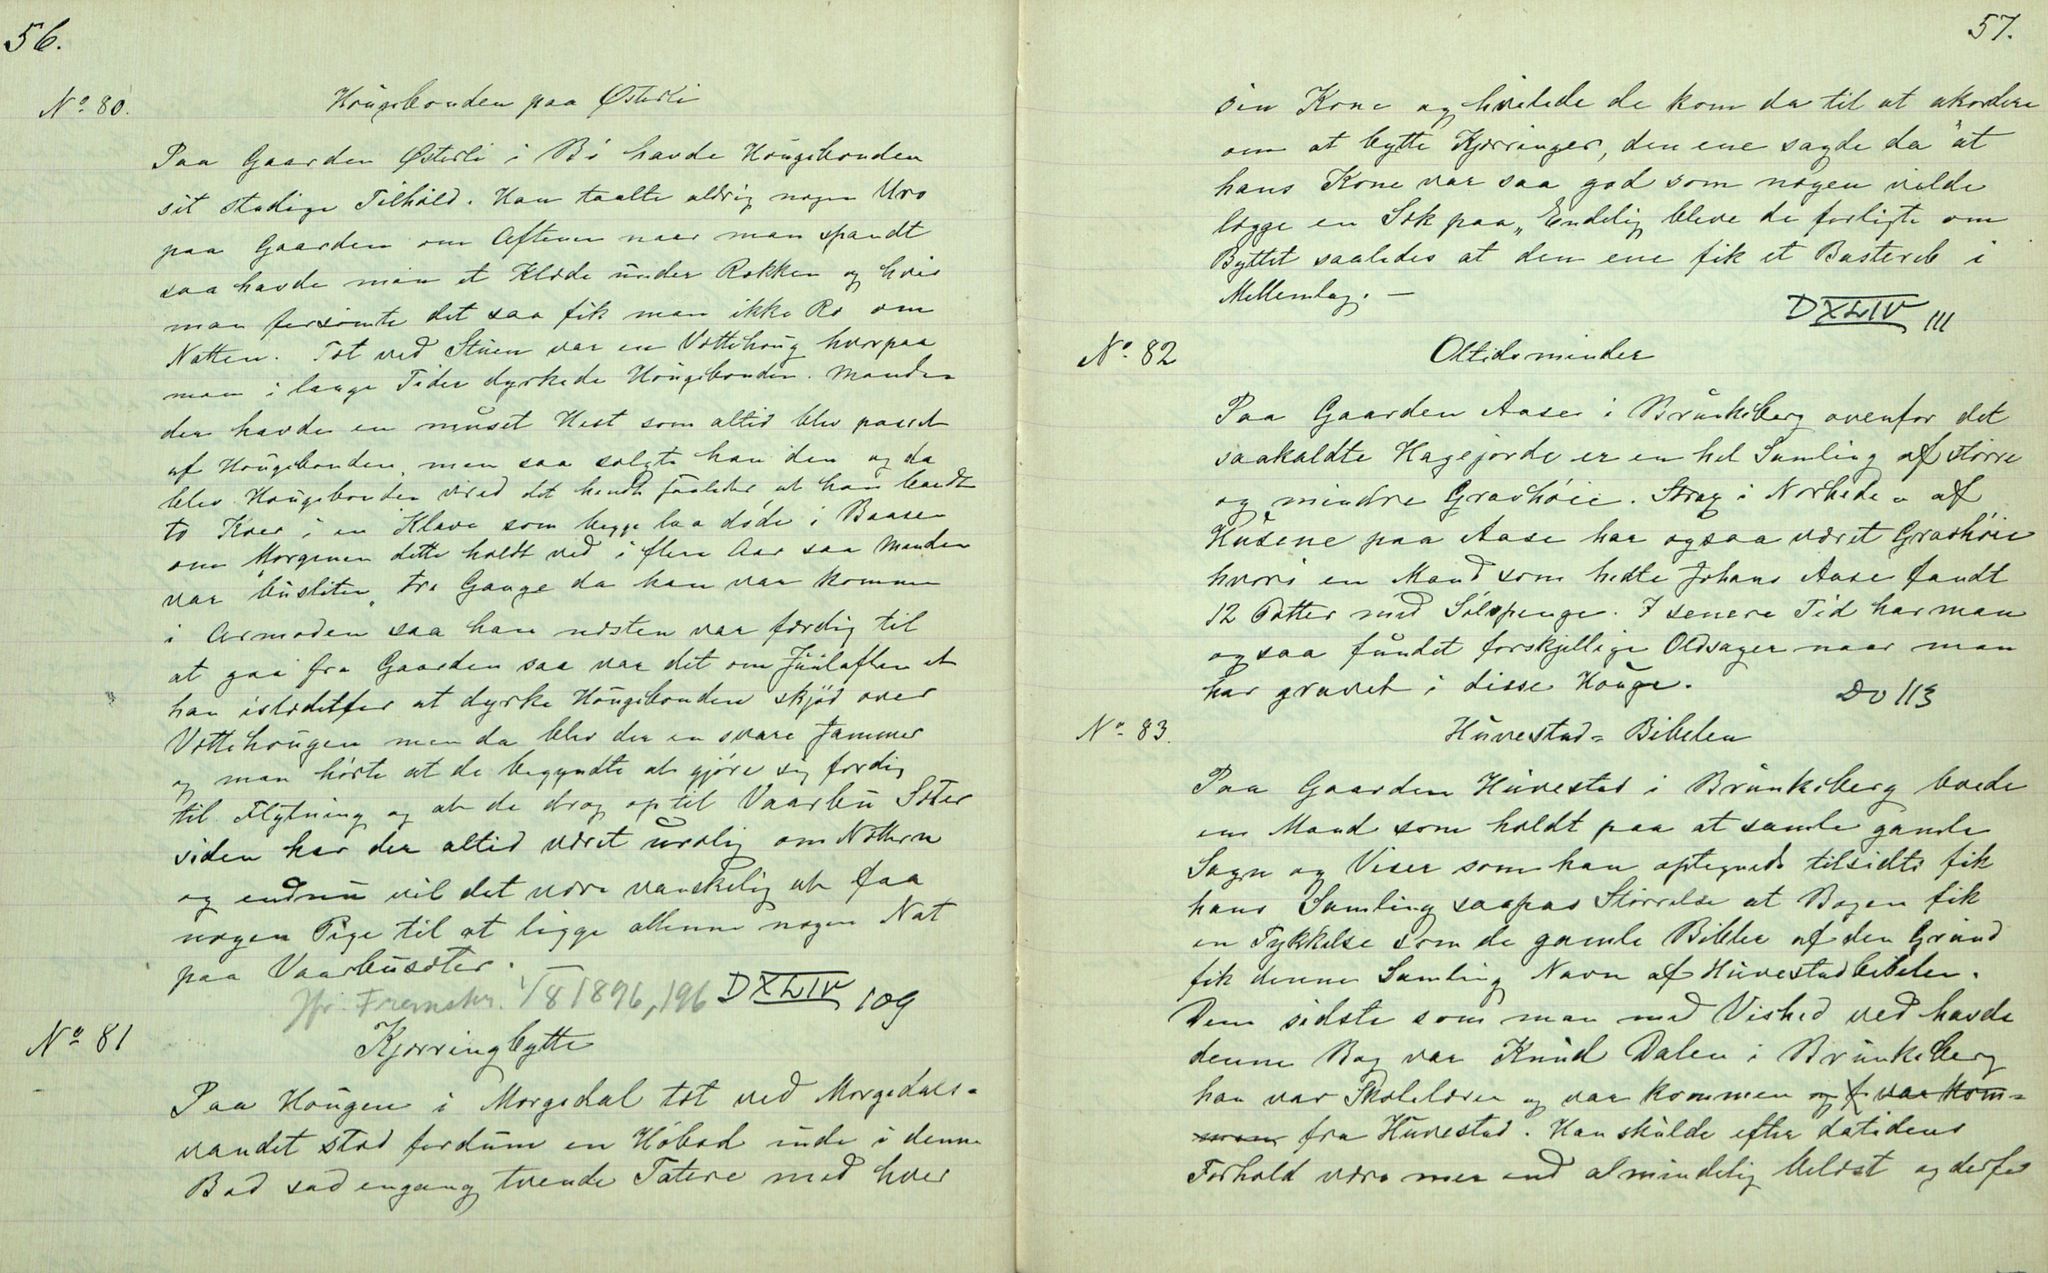 56.
No 80. Hougebonden paa Østerli
Paa Gaarden Østerli i Bö havde Hougebonden
sit stadige Tilhold. Han taalte aldrig nogen Uro
paa Gaarden om Aftenen naar man spandt
saa havde man et Klæde under Rokken og hvis
man forsömte det saa fik man ikke Ro om
Natten. Tæt ved Stuen var en Vættehoug hvorpaa
man i lange Tider dyrkede Hougebonden. Manden
der havde en muset Hest som altid blev passet
af Hougebonden, men saa solgte han den og da
blev Hougebonden vred det hendte saaledes at han bandt
to Kver i en Klave som begge laa döde i Baasen
om Morgenen dette holdt ved i flere Aar saa Manden
var busliten, tre Gange da han var kommen
i Armoden saa han næsten var færdig til
at gaa fra Gaarden saa var det om Juulaften at
han istedetfor at dyrke Hougebonden skjöd over
Vættehougen men da blev der en svare Jammer
og man hörte at de begyndte at gjöre sig færdig
til Flytning og at de drog op til Vaarbu Sæter
siden har der altid været urolig om Nætterne
og endnu vil det være vanskelig at faa
nogen Pige til at ligge allenne nogen Nat
paa Vaarbusæter.
Jfr. Fremskr. 1/8 1896, 196 DXLIV 109
No 81 Kjærringbytte
Paa Hougen i Morgedal tæt ved Morgedals-
vandet stod fordum en Höbod inde i denne
Bod sad engang tvende Tatere med hver
57.
sin Kone og hvilede de kom da til at akordere
om at bytte Kjærringer, den ene sagde da "at
hans Kone var saa god som nogen vilde
lægge en Sæk paa„ Endelig bleve de forligte om
Byttet saaledes at den ene fik et Bastereb i
Mellemlag. —
DXLIV 111
No 82 Oltidsminder
Paa Gaarden Aase i Brunkeberg ovenfor det
saakaldte Hagejorde er en hel Samling af större
og mindre Gravhöie. Strax i Norheden af
Husene paa Aase har ogsaa været Gravhöie
hvori en Mand som hedte Johans Aase fandt
12 Potter med Sölvpenge. I senere Tid har man
ogsaa fundet forskjellige Oldsager naar man
har gravet i disse Houge.
Do 113
No 83. Huvestad=Bibelen
Paa Gaarden Huvestad i Brunkeberg boede
en Mand som holdt paa at samle gamle
Sagn og Viser som han optegnede tilsidts fik
hans Samling saapas Störrelse at Bogen fik
en Tykkelse som de gamle Bibler af den Grund
fik denne Samling Navn af Huvestadbibelen.
Den sidste som man med Vished ved havde
denne Bog var Knud Dalen i Brunkeberg
han var Skolelærer og var kommen og f var kom-
men fra Huvestad. Han skulde efter datidens
Forhold være mer end almindelig belæst og derfor